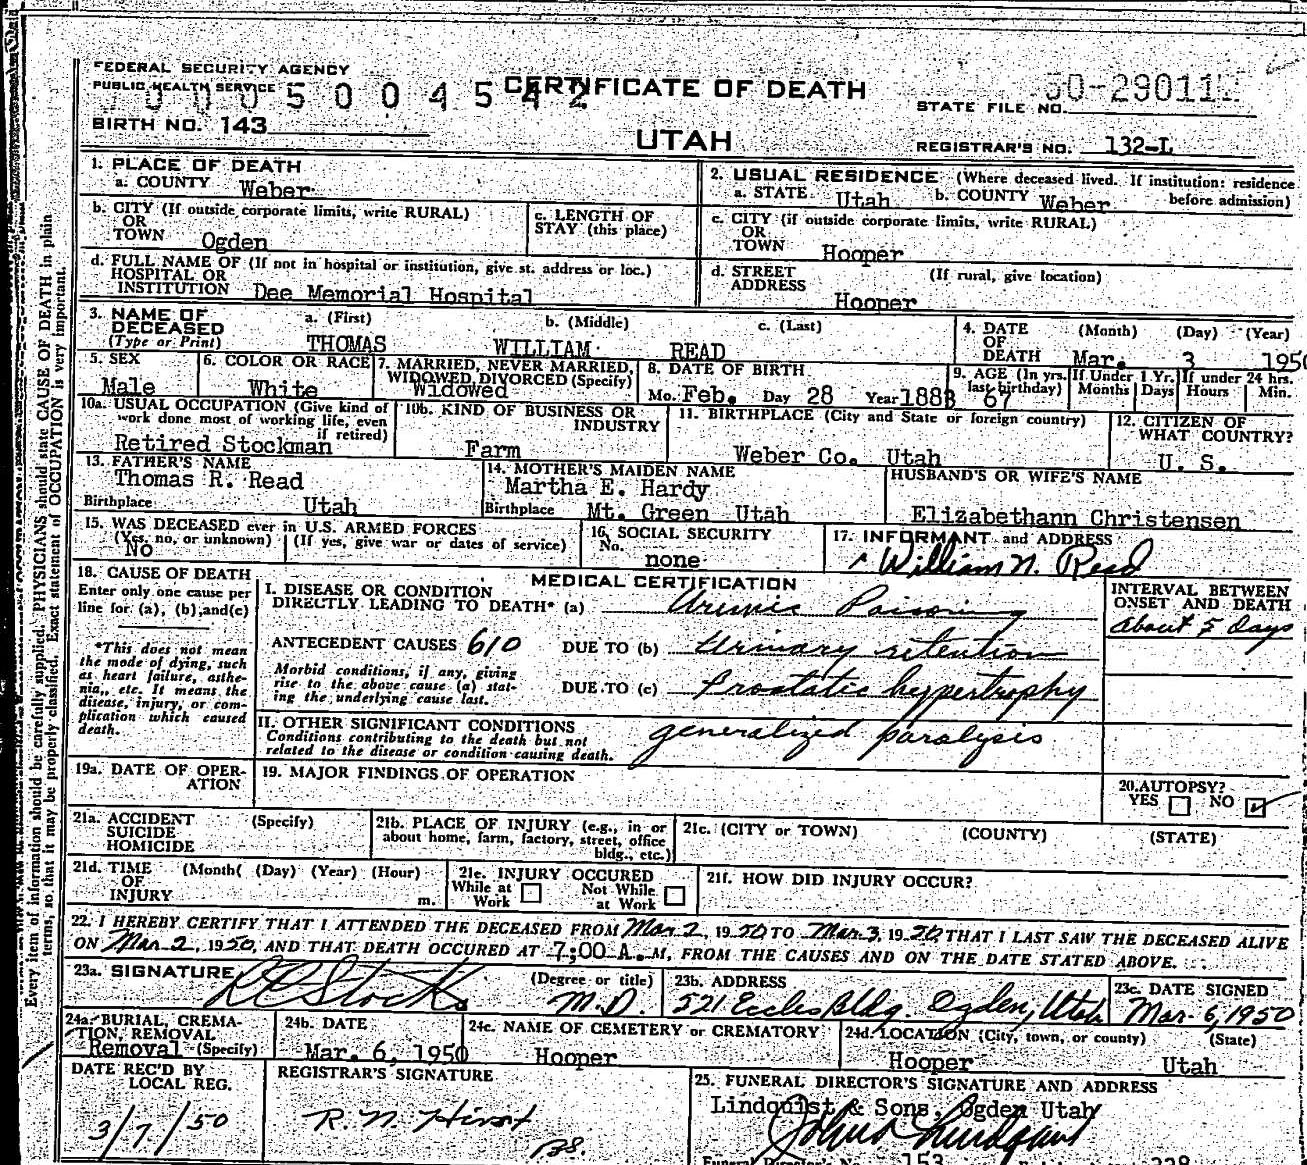 FEDERAL SECURITY AGENCY
PUBLIC HEALTH SERVICE
0005004542
CERTIFICATE OF DEATH
STATE FILE NO. 50-29011
BIRTH NO. 143
UTAH
REGISTRAR'S NO. 132-L
1. PLACE OF DEATH
a. COUNTY Weber
2. USUAL RESIDENCE (Where deceased lived. If institution: residence before admission)
a. STATE Utah b. COUNTY Weber
b. CITY (If outside corporate limits, write RURAL)
OR
TOWN Ogden
c. LENGTH OF
STAY (this place)
c. CITY (if outside corporate limits, write RURAL)
OR
TOWN Hooper
d. FULL NAME OF (If not in hospital or institution, give st. address or loc.)
HOSPITAL OR
INSTITUTION Dee Memorial Hospital
d. STREET (If rural, give location)
ADDRESS Hooper
3. NAME OF a. (First) b. (Middle) c. (Last)
DECEASED
(Type or Print) THOMAS WILLIAM READ
4. DATE (Month) (Day) (Year)
OF
DEATH Mar. 3 1950
5. SEX
Male
6. COLOR OR RACE
White
7. MARRIED, NEVER MARRIED,
WIDOWED, DIVORCED (Specify)
Widowed
8. DATE OF BIRTH
Mo. Feb. Day 28 Year 1883
9. AGE (In yrs. last birthday) 67
If Under 1 Yr. Months Days
If under 24 hrs. Hours Min.
10a. USUAL OCCUPATION (Give kind of
work done most of working life, even
if retired)
Retired Stockman
10b. KIND OF BUSINESS OR
INDUSTRY
Farm
11. BIRTHPLACE (City and State or foreign country)
Weber Co. Utah
12. CITIZEN OF
WHAT COUNTRY?
U. S.
13. FATHER'S NAME
Thomas R. Read
Birthplace Utah
14. MOTHER'S MAIDEN NAME
Martha E. Hardy
Birthplace Mt. Green Utah
HUSBAND'S OR WIFE'S NAME
Elizabethann Christensen
15. WAS DECEASED ever in U.S. ARMED FORCES
(Yes, no, or unknown) (If yes, give war or dates of service)
No
16. SOCIAL SECURITY
No.
none
17. INFORMANT and ADDRESS
William N. Read
18. CAUSE OF DEATH
Enter only one cause per
line for (a), (b), and (c)
*This does not mean
the mode of dying, such
as heart failure, asthe-
nia, etc. It means the
disease, injury, or com-
plication which caused
death.
MEDICAL CERTIFICATION
I. DISEASE OR CONDITION
DIRECTLY LEADING TO DEATH* (a) Uremic Poisoning
ANTECEDENT CAUSES 610 DUE TO (b) Urinary retention
Morbid conditions, if any, giving
rise to the above cause (a) stat-
ing the underlying cause last.
DUE TO (c) Prostatic hypertrophy
II. OTHER SIGNIFICANT CONDITIONS
Conditions contributing to the death but not
related to the disease or condition causing death.
generalized paralysis
INTERVAL BETWEEN
ONSET AND DEATH
About 5 days
19a. DATE OF OPER-
ATION
19. MAJOR FINDINGS OF OPERATION
20. AUTOPSY?
YES NO
21a. ACCIDENT (Specify)
SUICIDE
HOMICIDE
21b. PLACE OF INJURY (e.g., in or
about home, farm, factory, street, office
bldg., etc.)
21c. (CITY or TOWN) (COUNTY) (STATE)
21d. TIME (Month( (Day) (Year) (Hour)
OF
INJURY m.
21e. INJURY OCCURED
While at Work Not While at Work
21f. HOW DID INJURY OCCUR?
22. I HEREBY CERTIFY THAT I ATTENDED THE DECEASED FROM Mar 2, 1950 TO Mar 3, 1950, THAT I LAST SAW THE DECEASED ALIVE
ON Mar 2, 1950, AND THAT DEATH OCCURED AT 7:00 A.M, FROM THE CAUSES AND ON THE DATE STATED ABOVE.
23a. SIGNATURE (Degree or title)
Stocks M.D.
23b. ADDRESS
521 Eccles Bldg. Ogden, Utah
23c. DATE SIGNED
Mar. 6, 1950
24a. BURIAL, CREMA-
TION, REMOVAL
Removal (Specify)
24b. DATE
Mar. 6, 1950
24c. NAME OF CEMETERY or CREMATORY
Hooper
24d. LOCATION (City, town, or county) (State)
Hooper Utah
DATE REC'D BY
LOCAL REG.
3/7/50
REGISTRAR'S SIGNATURE
R. N. Hirst
25. FUNERAL DIRECTOR'S SIGNATURE AND ADDRESS
Lindquist & Sons, Ogden Utah
153
228
Every item of information should be carefully supplied. PHYSICIANS should state CAUSE OF DEATH in plain
terms, so that it may be properly classified. Exact statement of OCCUPATION is very important.